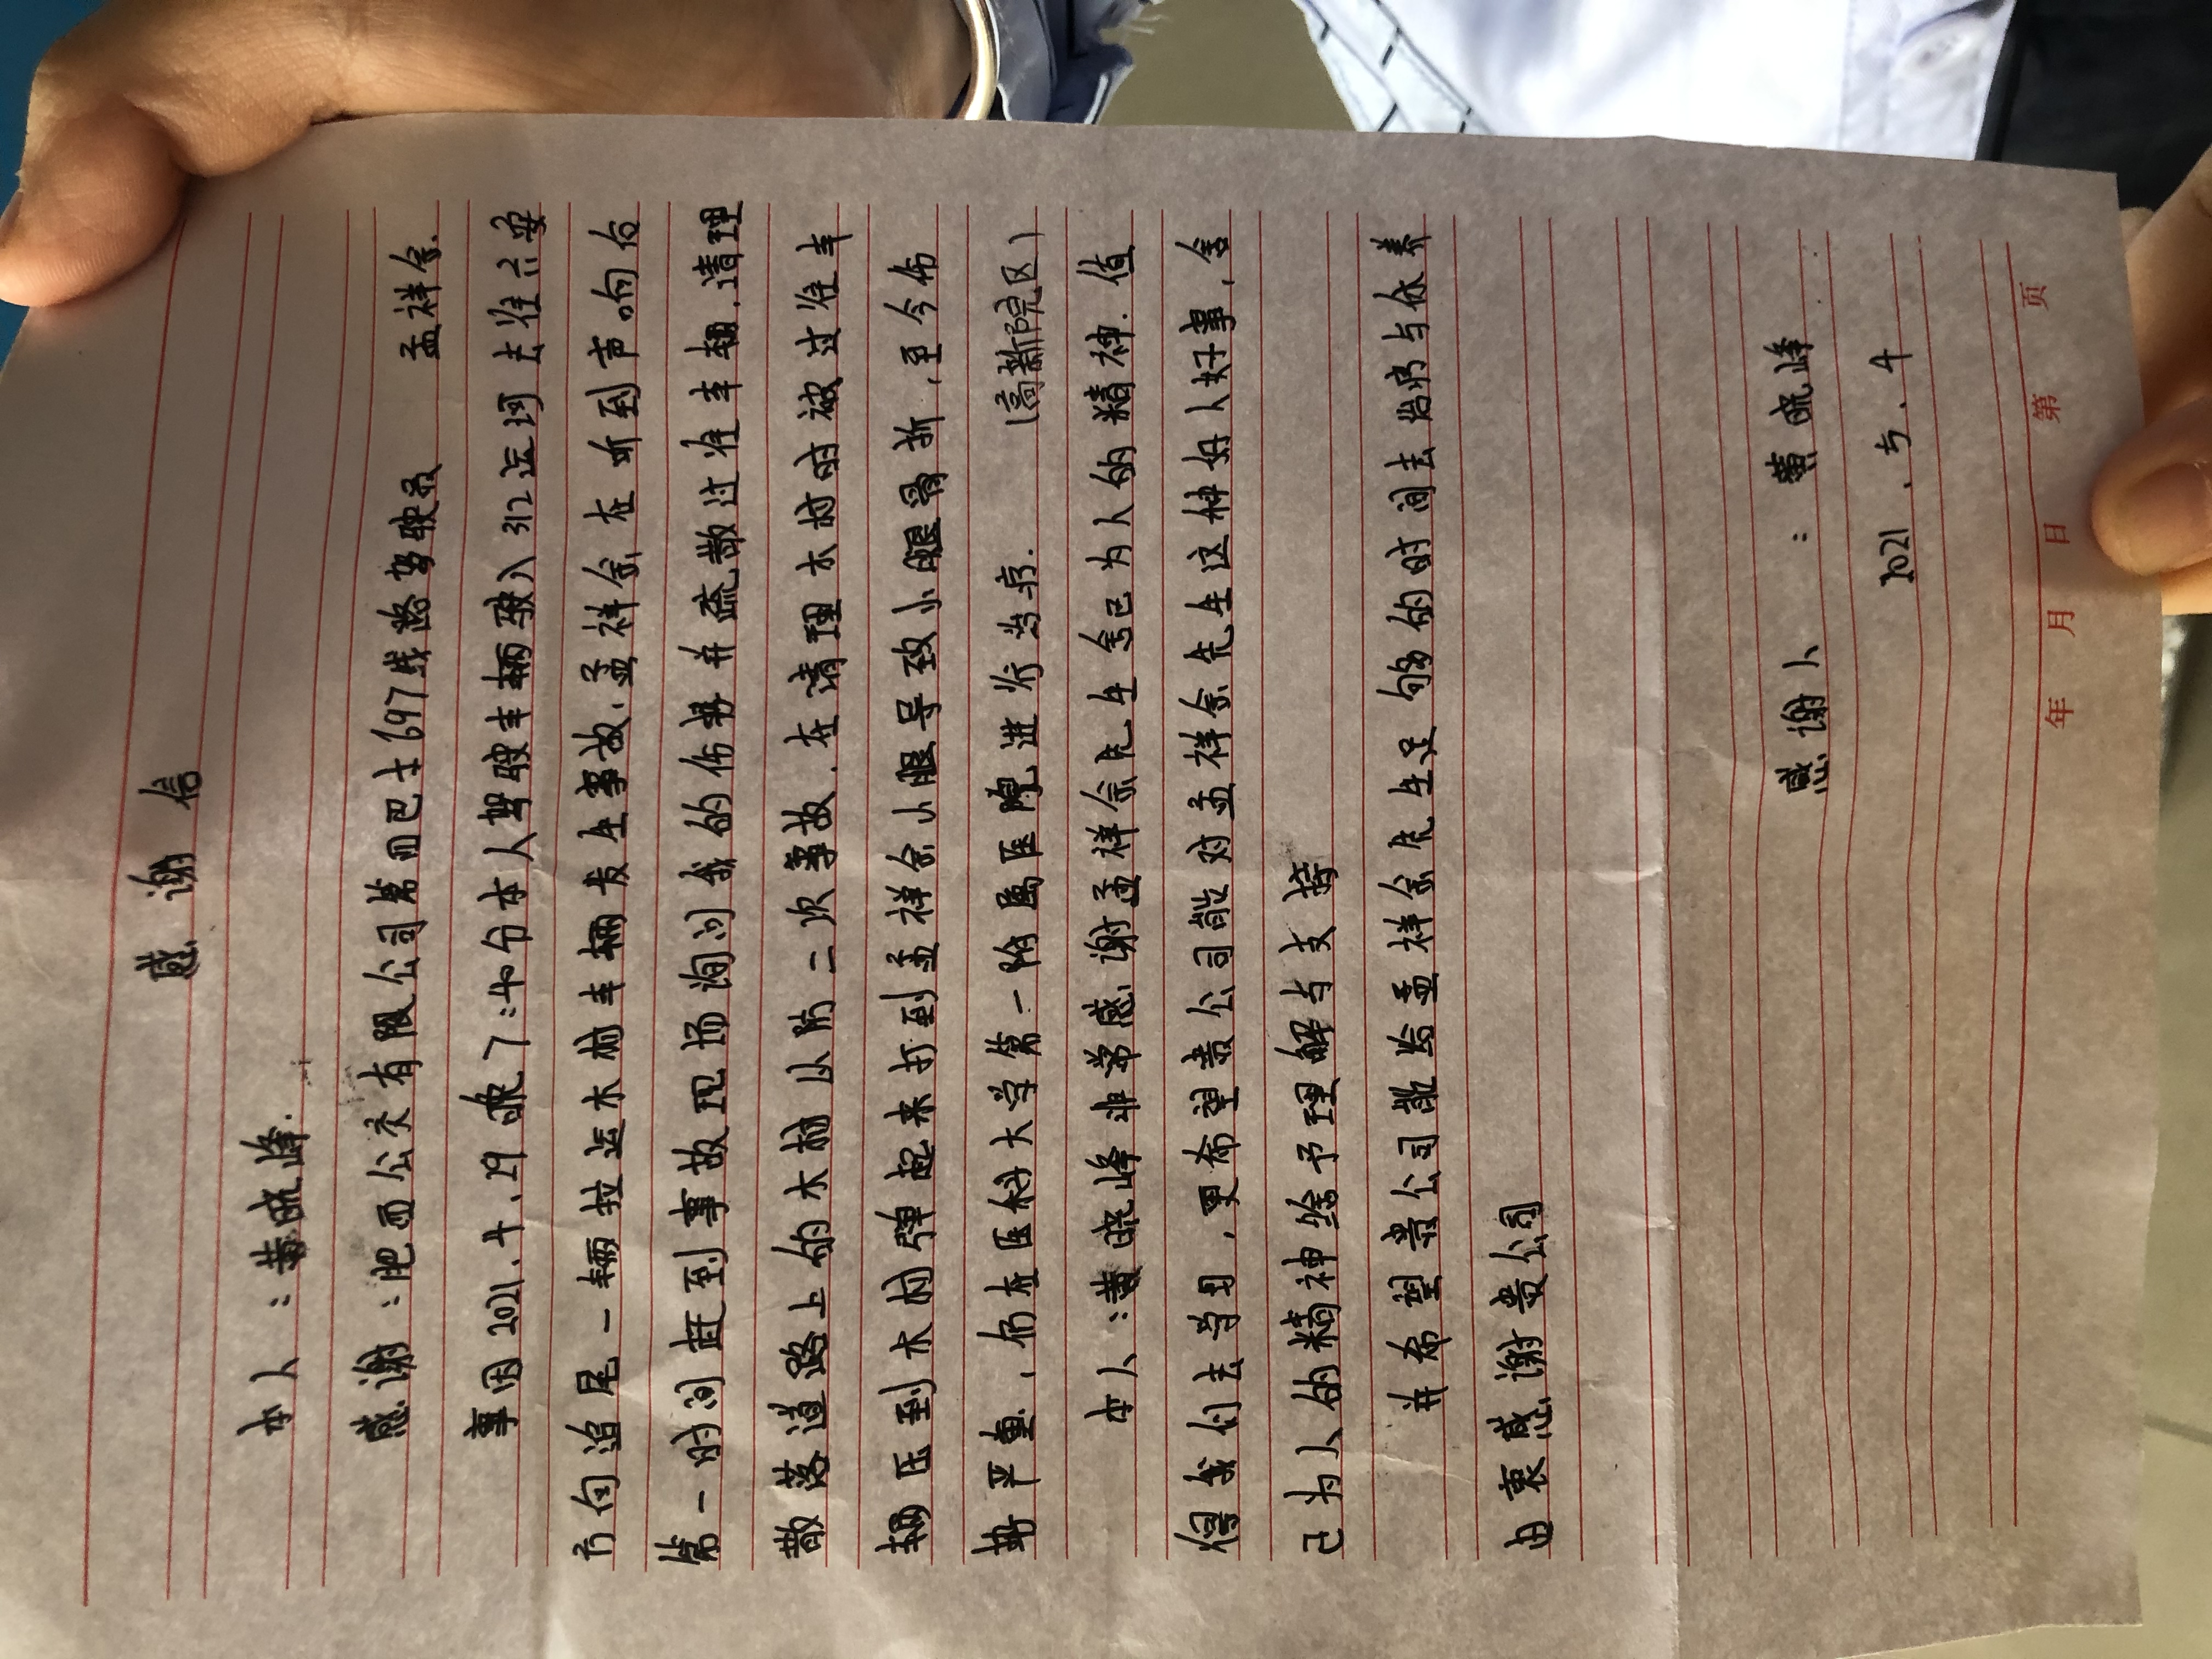 感谢信
本人:黄晓峰.
感谢:肥西公交有限公司第四巴士697线路驾驶员 孟祥余.
事因2021.4.29晚7:40分本人驾驶车辆驶入312运河去往六安
方向追尾一辆拉运木材车辆发生事故.孟祥余在听到声响后
第一时间赶到事故现场询问我的伤势并疏散过往车辆.清理
散落道路上的木材以防二次事故.在清理木材时被过往车
辆压到木材弹起来打到孟祥余小腿导致小腿骨折,至今伤
势严重,仍在医科大学第一附属医院进行治疗. (高新院区)
本人:黄晓峰非常感谢孟祥余先生舍己为人的精神.值
得我们去学习,更希望贵公司能对孟祥余先生这种好人好事,舍
己为人的精神给予理解与支持
并希望贵公司能给孟祥余先生足够的时间去治病与休养
由衷感谢贵公司
感谢人:黄晓峰
2021.5.4
年 月 日 第 页